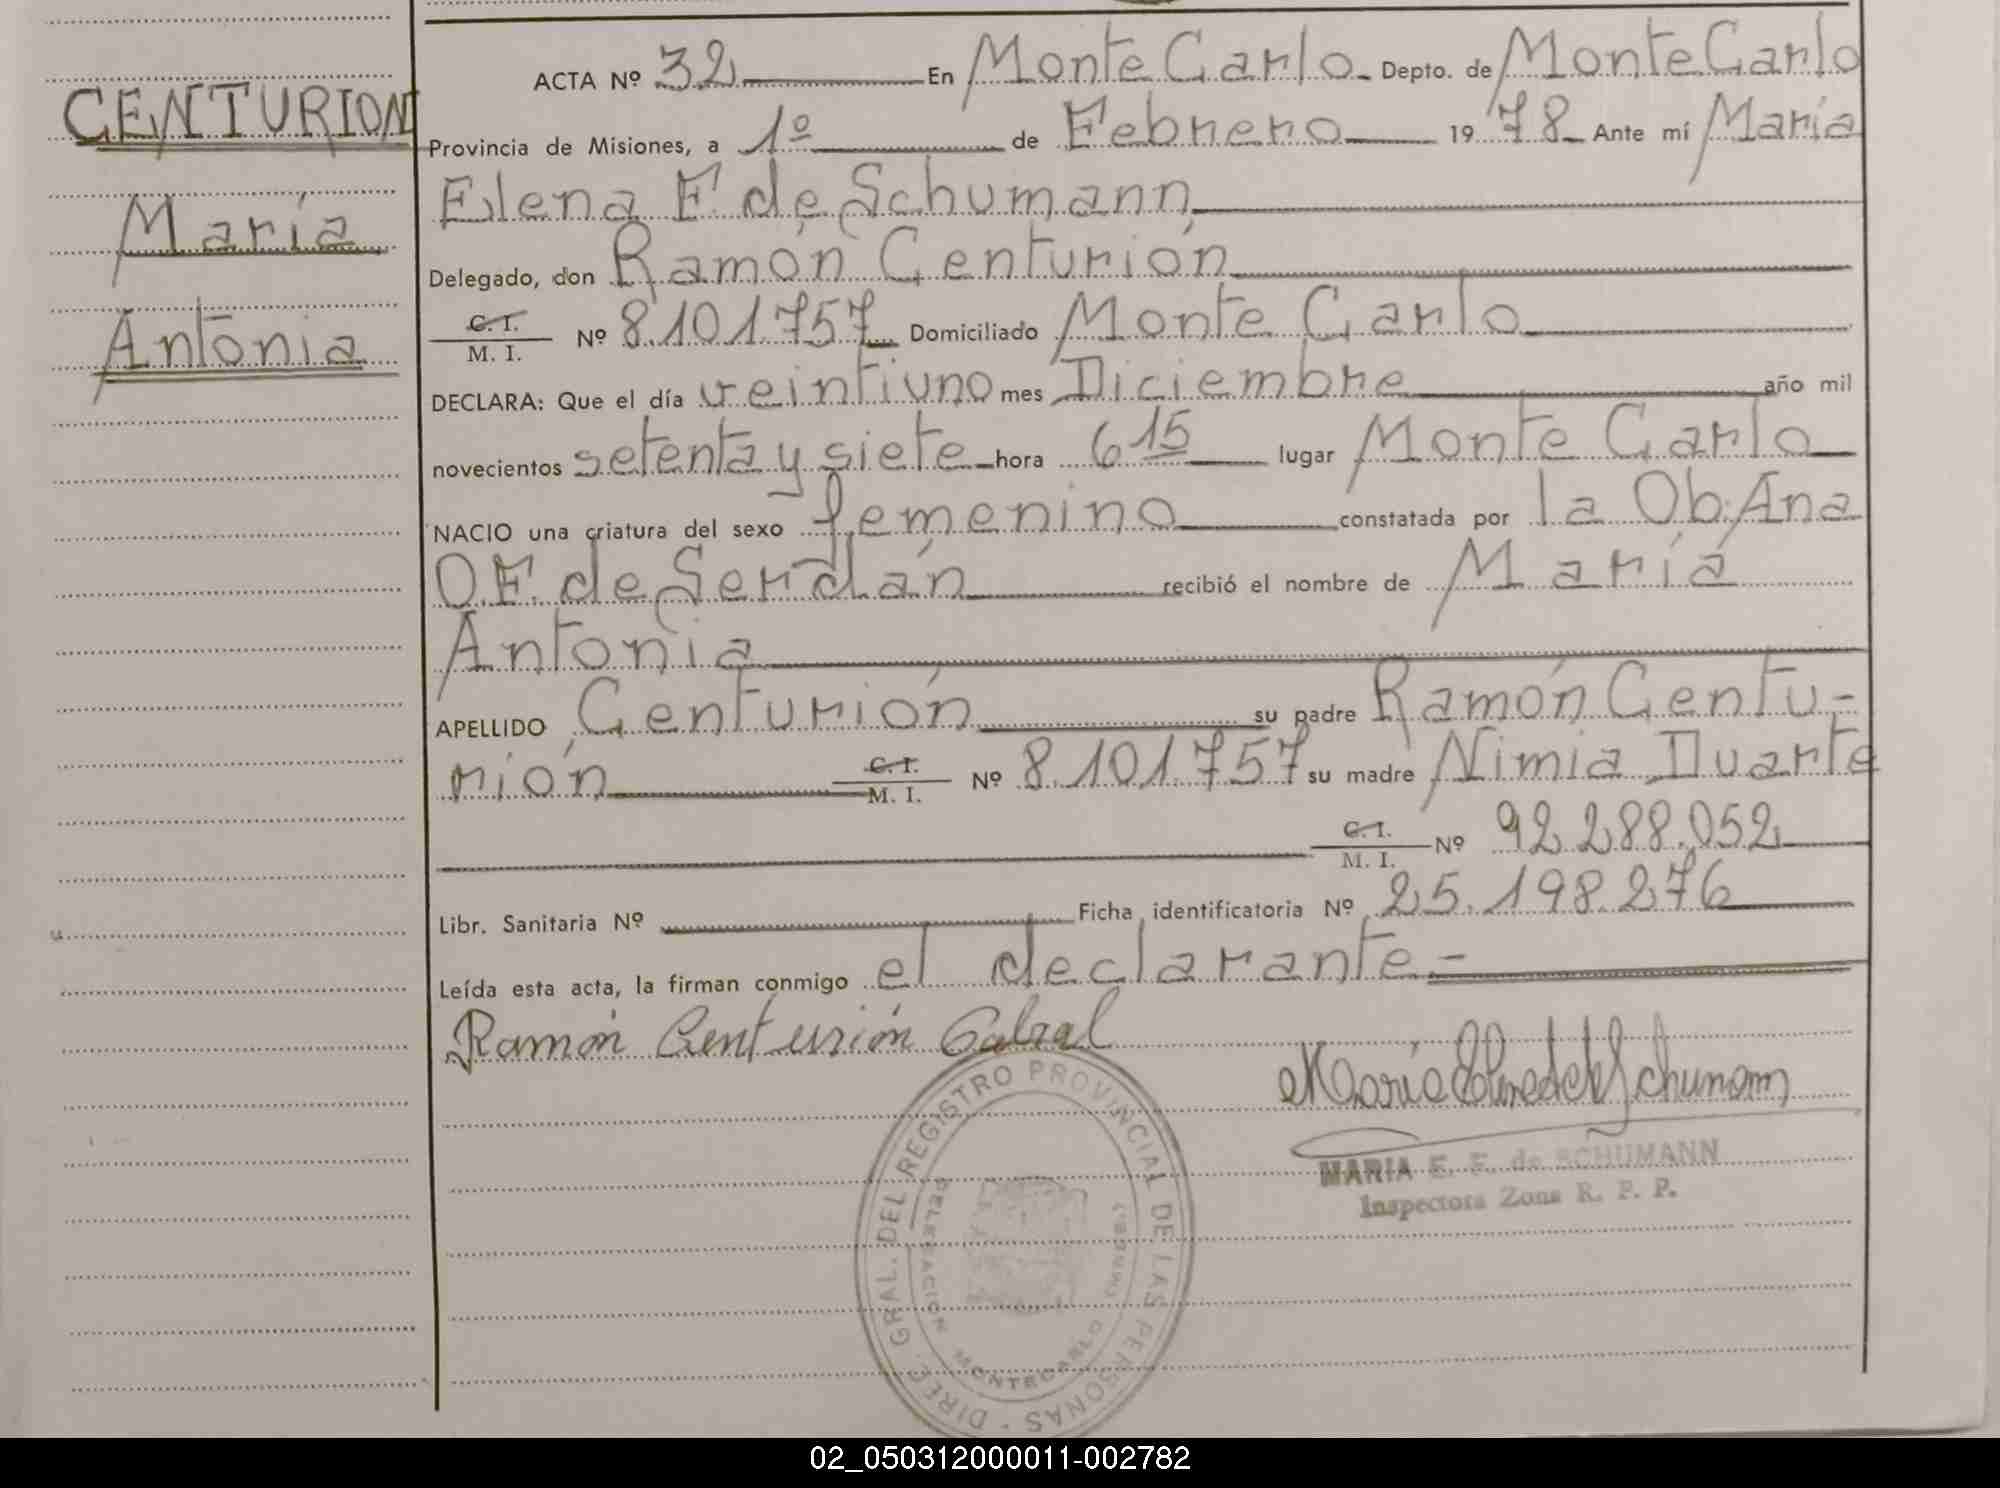 CENTURION
María
Antonia
ACTA Nº 32 En Monte Carlo Depto. de Monte Carlo
Provincia de Misiones, a 1º de Febrero 19 78 Ante mí María
Elena F. de Schumann
Delegado, don Ramón Centurión
C. I.
M. I. Nº 8.101.757 Domiciliado Monte Carlo
DECLARA: Que el día veintiuno mes Diciembre año mil
novecientos setenta y siete hora 6 15 lugar Monte Carlo
NACIO una criatura del sexo femenino constatada por la Ob. Ana
O. F. de Serdán recibió el nombre de María
Antonia
APELLIDO Centurión su padre Ramón Centu-
rión C. I.
M. I. Nº 8.101.757 su madre Nimia Duarte
C. I.
M. I. Nº 92.288.052
Libr. Sanitaria Nº Ficha identificatoria Nº 25.198.276
Leída esta acta, la firman conmigo el declarante-
Ramón Centurión Cabral
DIREC. GRAL. DEL REGISTRO PROVINCIAL DE LAS PERSONAS
DELEGACION MONTECARLO
MARIA E. F. de SCHUMANN
Inspectora Zona R. P. P.
02_050312000011-002782